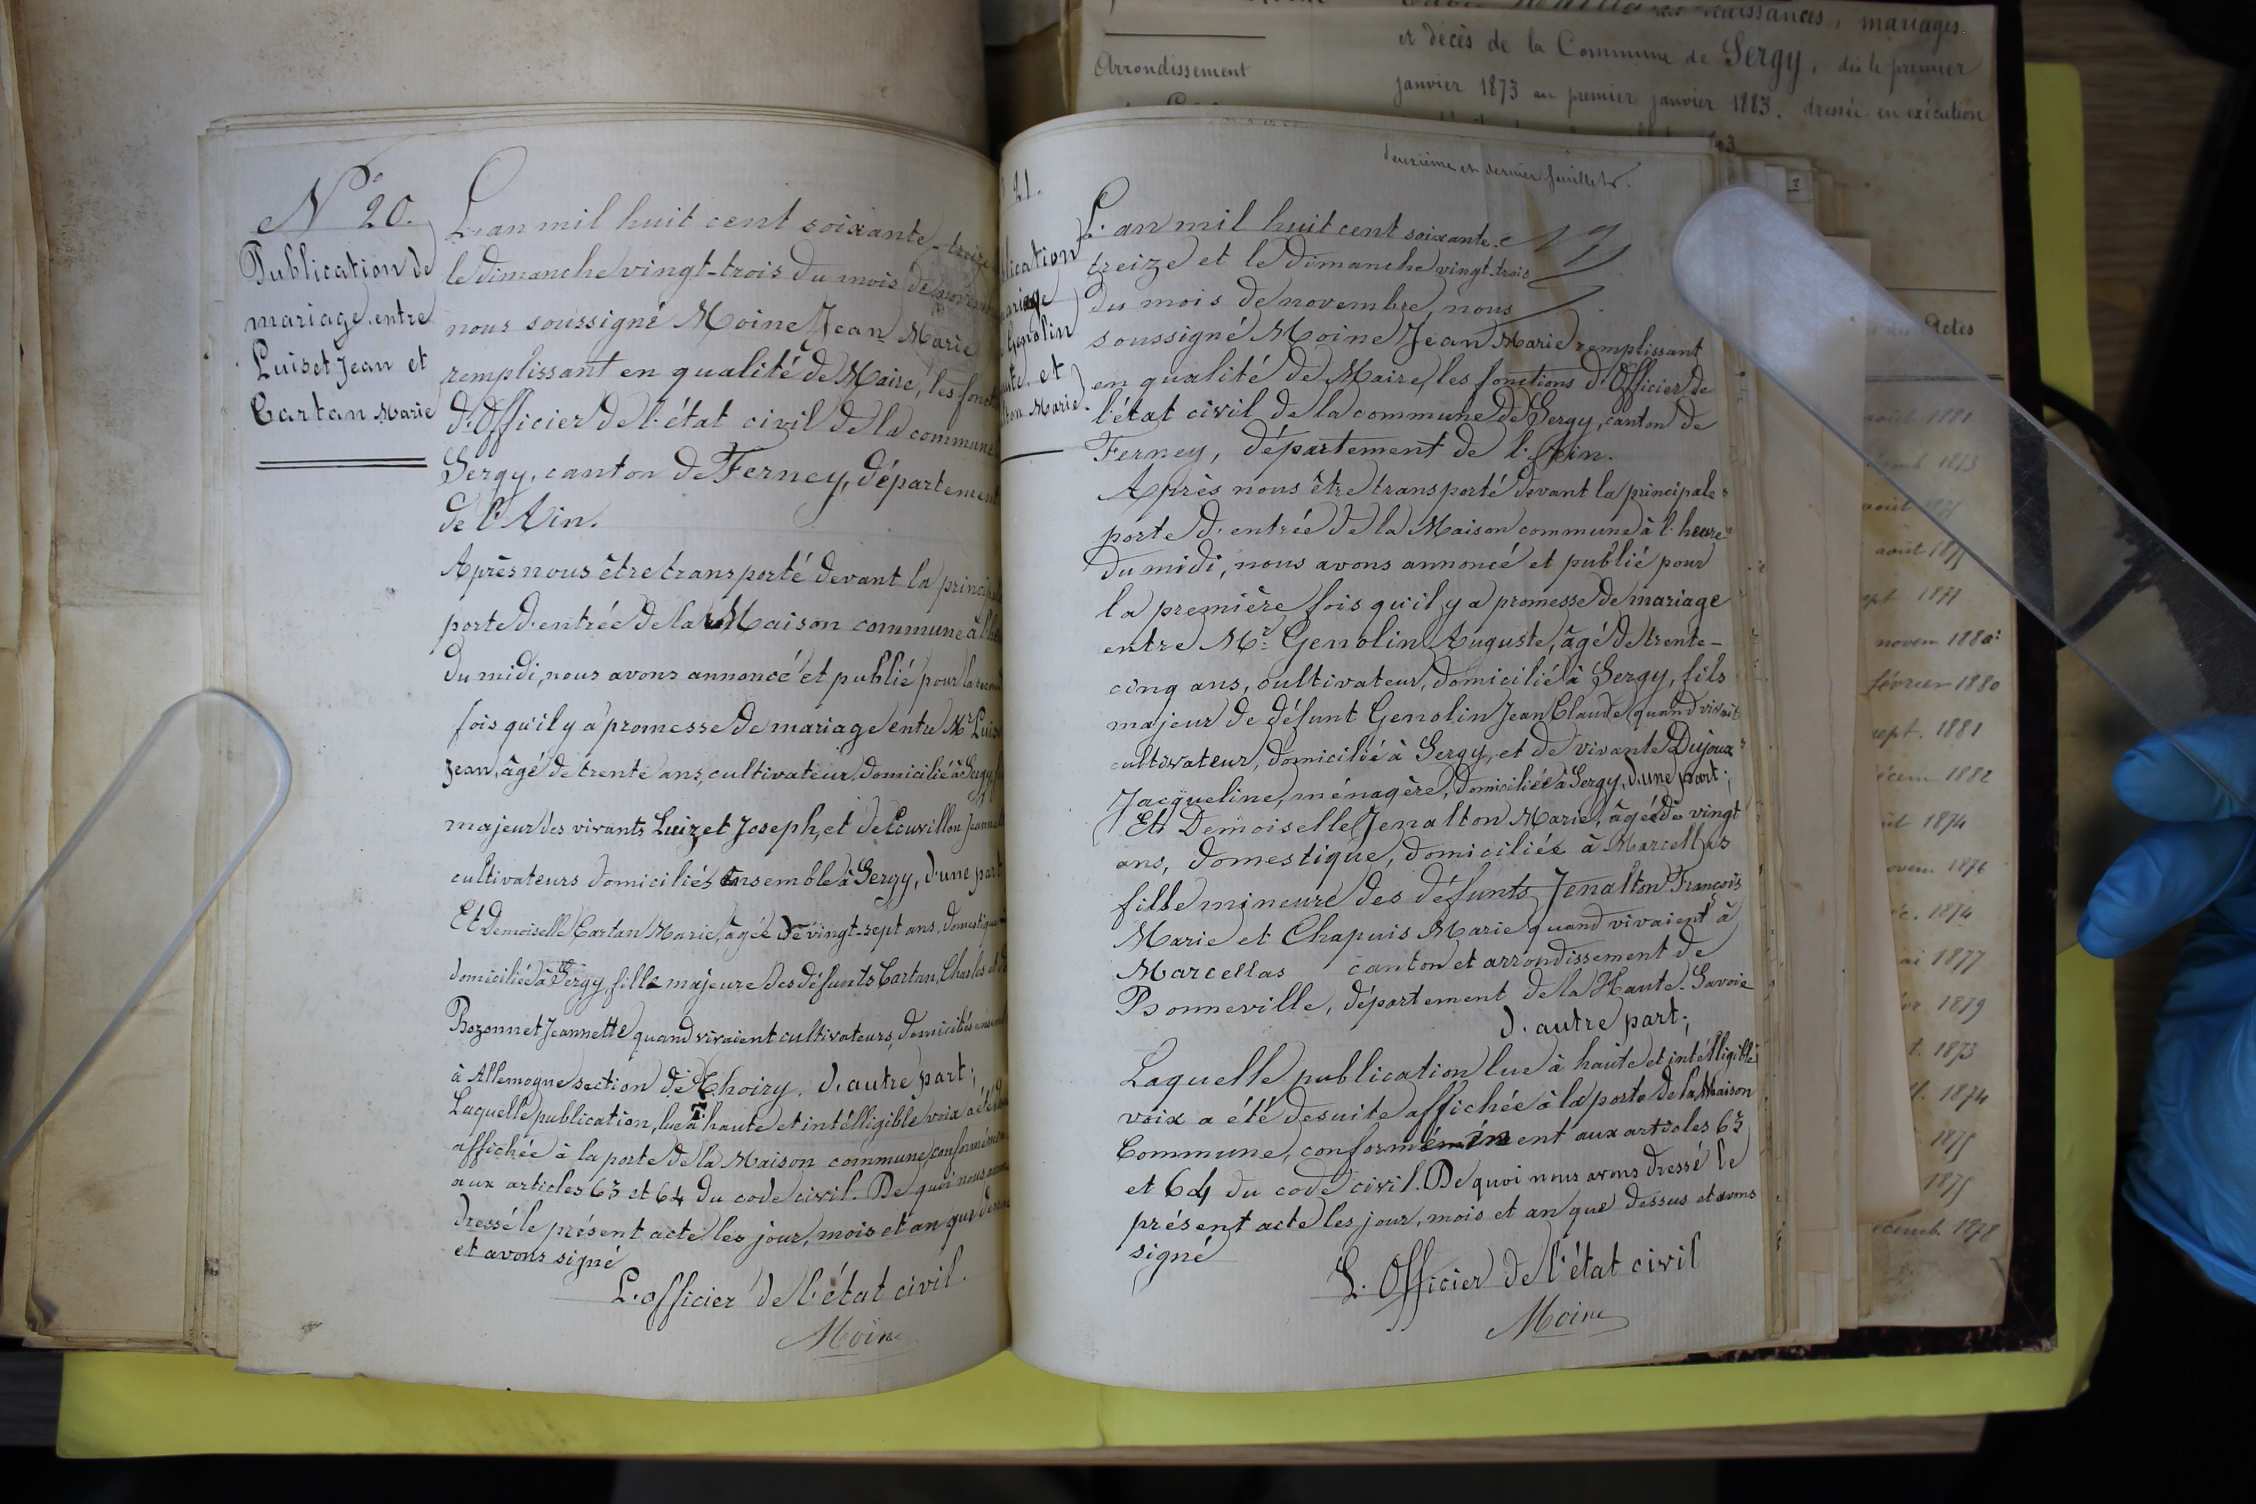 N° 20.
Publication de
mariage entre
Luiset Jean et
Cartan Marie
L'an mil huit cent soixante-treize
le dimanche vingt-trois du mois de novem
nous soussigné Moine Jean Marie
remplissant en qualité de Maire, les fonct
d'Officier de l'état civil de la commune
Sergy, canton de Ferney, département
de l'Ain.
Après nous être transporté devant la princip
porte d'entrée de la Maison commune à l'h
du midi, nous avons annoncé et publié pour la
fois qu'il y a promesse de mariage entre Mr Luis
Jean, âgé de trente ans, cultivateur, domicilié à Sergy
majeur des vivants Luizet Joseph, et de Couvillon Jeann
cultivateurs domiciliés ensemble à Sergy, d'une part
Et Demoiselle Cartan Marie, âgée de vingt-sept ans, domestique
domiciliée à Sergy, fille majeure des défunts Cartan, Charles et
Bozonnet Jeannette quand vivaient cultivateurs, domiciliés ensem
à Allemogne section de Choiry. d'autre part;
Laquelle publication, lue à haute et intélligible voix a été
affichée à la porte de la Maison commune, conformém
aux articles 63 et 64 du code civil. De quoi nous avons
dressé le présent acte les jour, mois et an que dessus
et avons signé
L'officier de l'état civil.
Moine
deuxième et dernier feuillets.
21.
lication
mariage
Genolin
uste et
lton Marie.
L'an mil huit cent soixante-
treize et le dimanche vingt-trois
du mois de novembre, nous
soussigné Moine Jean Marie remplissant
en qualité de Maire, les fonctions d'Officier de
l'état civil de la commune de Sergy, canton de
Ferney, département de l'Ain.
Après nous être transporté devant la principale
porte d'entrée de la Maison commune à l'heure
du midi, nous avons annoncé et publié pour
la première fois qu'il y a promesse de mariage
entre Mr Genolin Auguste, âgé de trente-
cinq ans, cultivateur, domicilié à Sergy, fils
majeur de défunt Genolin Jean Claude quand vivait
cultivateur, domicilié à Sergy, et de vivante Dujoux
Jacqueline, ménagère, domiciliée à Sergy, d'une part;
Et Demoiselle Jenalton Marie, âgée de vingt
ans, domestique, domiciliée à Marcellas
fille mineure des défunts Jenalton François
Marie et Chapuis Marie quand vivaient à
Marcellas canton et arrondissement de
Bonneville, département de la Haute-Savoie
d'autre part;
Laquelle publication lue à haute et intélligible
voix a été de suite affichée à la porte de la Maison
Commune, conformémément aux articles 63
et 64 du code civil. De quoi nous avons dressé le
présent acte les jour, mois et an que dessus et avons
signé
L'Officier de l'état civil
Moine
naissances, mariages
et décès de la Commune de Sergy, dès le premier
Arrondissement
janvier 1873 au premier janvier 1883. dressée en exécution
Actes
août 1881
1873
août 1875
août 1875
sept 1877
novem 1880
février 1880
sept. 1881
décem 1882
1874
novem 1876
1874
1877
1879
1873
1874
1875
1875
décemb. 1878